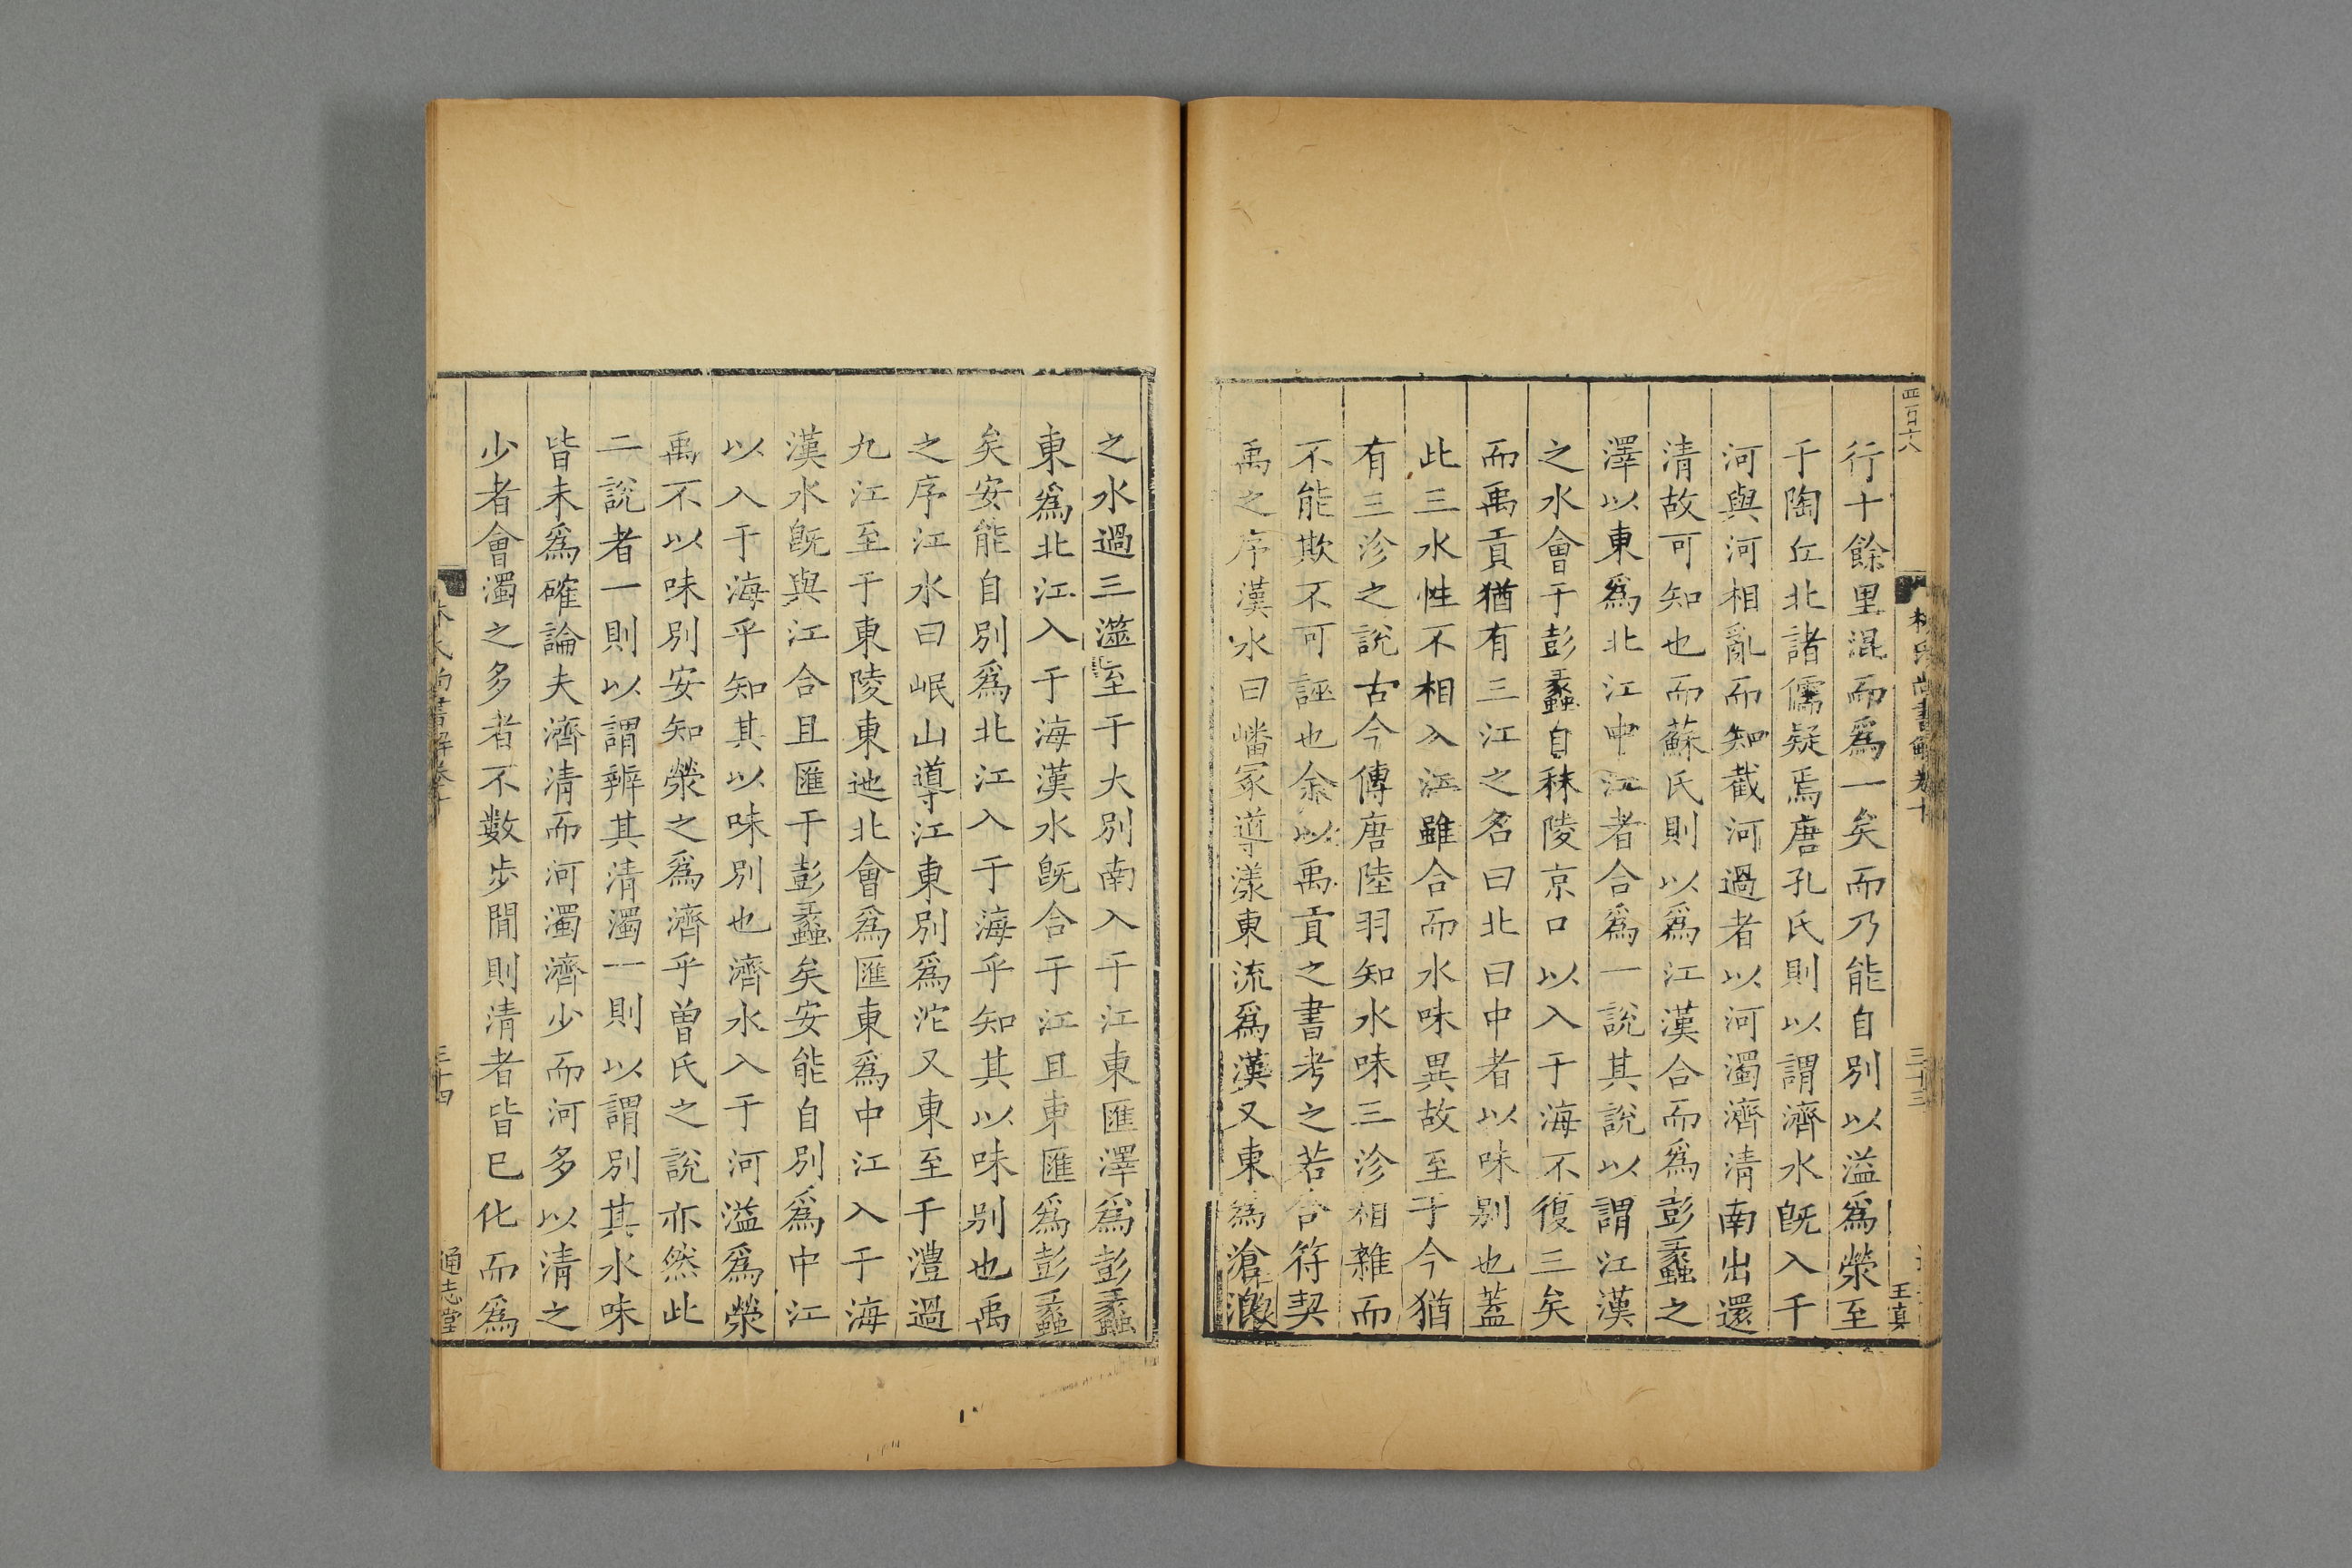 四百六八
林氏尚書解卷十
三十三
王真
行十餘里混而爲一矣而乃能自別以溢爲滎至
于陶丘北諸儒疑焉唐孔氏則以謂濟水旣入于
河與河相亂而知截河過者以河濁濟清南出還
清故可知也而蘇氏則以爲江漢合而爲彭蠡之
澤以東爲北江中江者合爲一說其說以謂江漢
之水會于彭蠡自秣陵京口以入于海不復三矣
而禹貢猶有三江之名曰北曰中者以味別也蓋
此三水性不相入江雖合而水味異故至于今猶
有三泠之說古今傳唐陸羽知水味三泠相雜而
不能欺不可誣也余以禹貢之書考之若合符契
禹之序漢水曰嶓冢導漾東流爲漢又東爲滄浪
之水過三澨至于大別南入于江東匯澤爲彭蠡
東爲北江入于海漢水旣合于江且東匯爲彭蠡
矣安能自別爲北江入于海乎知其以味別也禹
之序江水曰岷山導江東別爲沱又東至于澧過
九江至于東陵東迆北會爲匯東爲中江入于海
漢水旣與江合且匯于彭蠡矣安能自別爲中江
以入于海乎知其以味別也濟水入于河溢爲滎
禹不以味別安知滎之爲濟乎曾氏之說亦然此
二說者一則以謂辨其清濁一則以謂別其水味
皆未爲確論夫濟清而河濁濟少而河多以清之
少者會濁之多者不數步閒則清者皆已化而爲
林氏尚書解卷十
三十四
通志堂